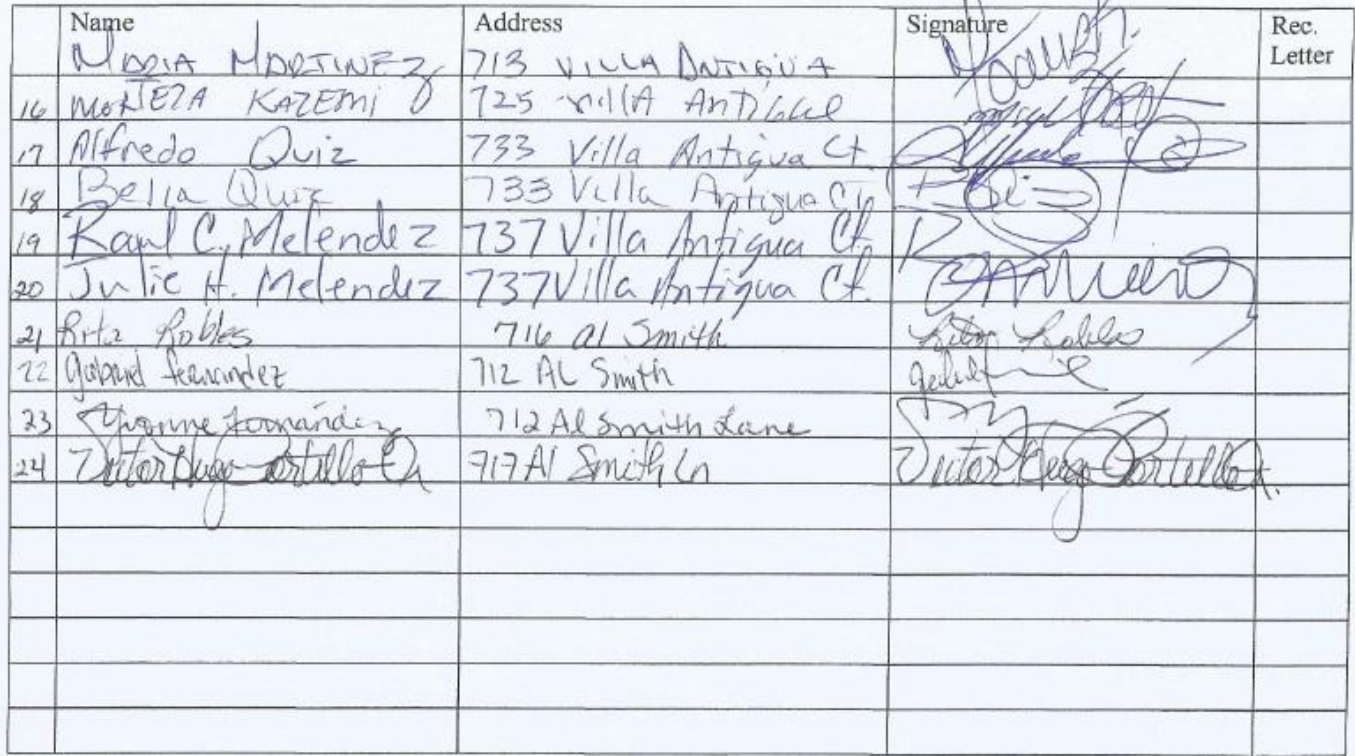 Name Address Signature Rec. Letter
MARIA MARTINEZ 713 VILLA ANTIGUA
16 MORTEZA KAZEMI 725 VILLA
17 Alfredo Quiz 733 Villa Antigua Ct.
18 Bella Quiz 733 Villa Antigua Ct.
19 Raul C. Melendez 737 Villa Antigua Ct.
20 Julie H. Melendez 737 Villa Antigua Ct.
21 Rita Robles 716 Al Smith Rita Robles
22 Gabriel Fernandez 712 AL Smith
23 Yvonne Fernández 712 Al Smith Lane
24 Victor Hugo Portillo Jr 717 Al Smith Ln Victor Hugo Portillo Jr.